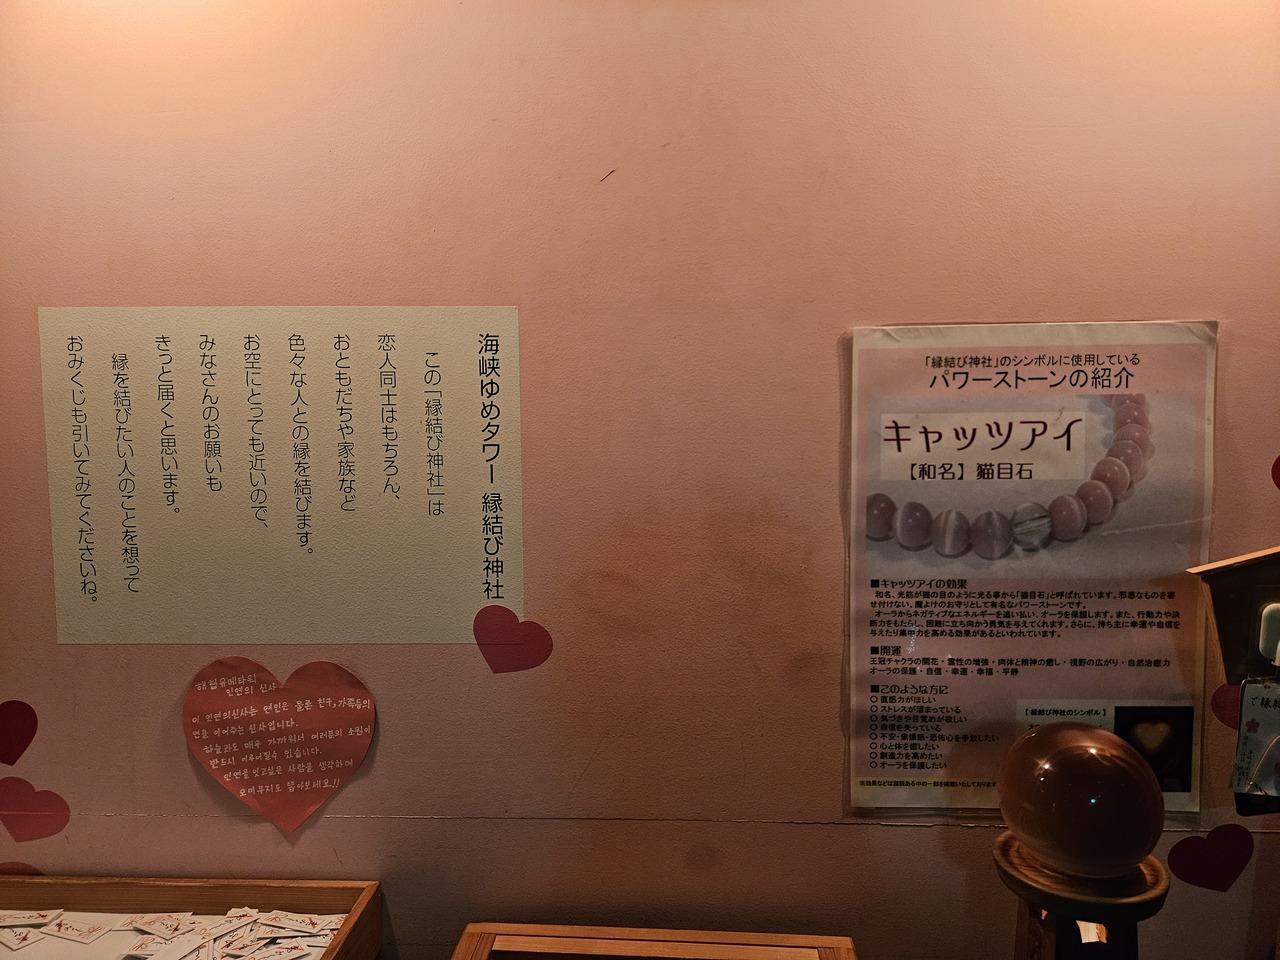 海峡ゆめタワー 縁結び神社
この「縁結び神社」は
恋人同士はもちろん、
おともだちや家族など
色々な人との縁を結びます。
お空にとっても近いので、
みなさんのお願いも
きっと届くと思います。
縁を結びたい人のことを想って
おみくじも引いてみてくださいね。
해협유메타워
인연의 신사
이 인연의신사는 연인은 물론 친구,가족등의
연을 이어주는 신사입니다.
하늘과도 매우 가까워서 여러분의 소원이
반드시 이루어질수 있습니다.
인연을 잇고싶은 사람을 생각하며
오미쿠지도 뽑아보세요!!
「縁結び神社」のシンボルに使用している
パワーストーンの紹介
キャッツアイ
【和名】猫目石
■キャッツアイの効果
和名、光筋が猫の目のように光る事から「猫目石」と呼ばれています。邪悪なものを寄
せ付けない、魔よけのお守りとして有名なパワーストーンです。
オーラからネガティブなエネルギーを追い払い、オーラを保護します。また、行動力や決
断力をもたらし、困難に立ち向かう勇気を与えてくれます。さらに、持ち主に幸運や自信を
与えたり集中力を高める効果があるといわれています。
■開運
王冠チャクラの開花・霊性の増強・肉体と精神の癒し・視野の広がり・自然治癒力
オーラの保護・自信・幸運・幸福・平静
■このような方に
○ 直感力がほしい
○ ストレスが溜まっている
○ 気づきや目覚めが欲しい
○ 自信を失っている
○ 不安・焦燥感・恐怖心を手放したい
○ 心と体を癒したい
○ 創造力を高めたい
○ オーラを保護したい
【 縁結び神社のシンボル 】
※効果などは諸説ある中の一部を掲載いたしております